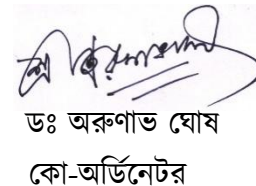 ডঃ অরুণাভ ঘোষ
কো-অর্ডিনেটর